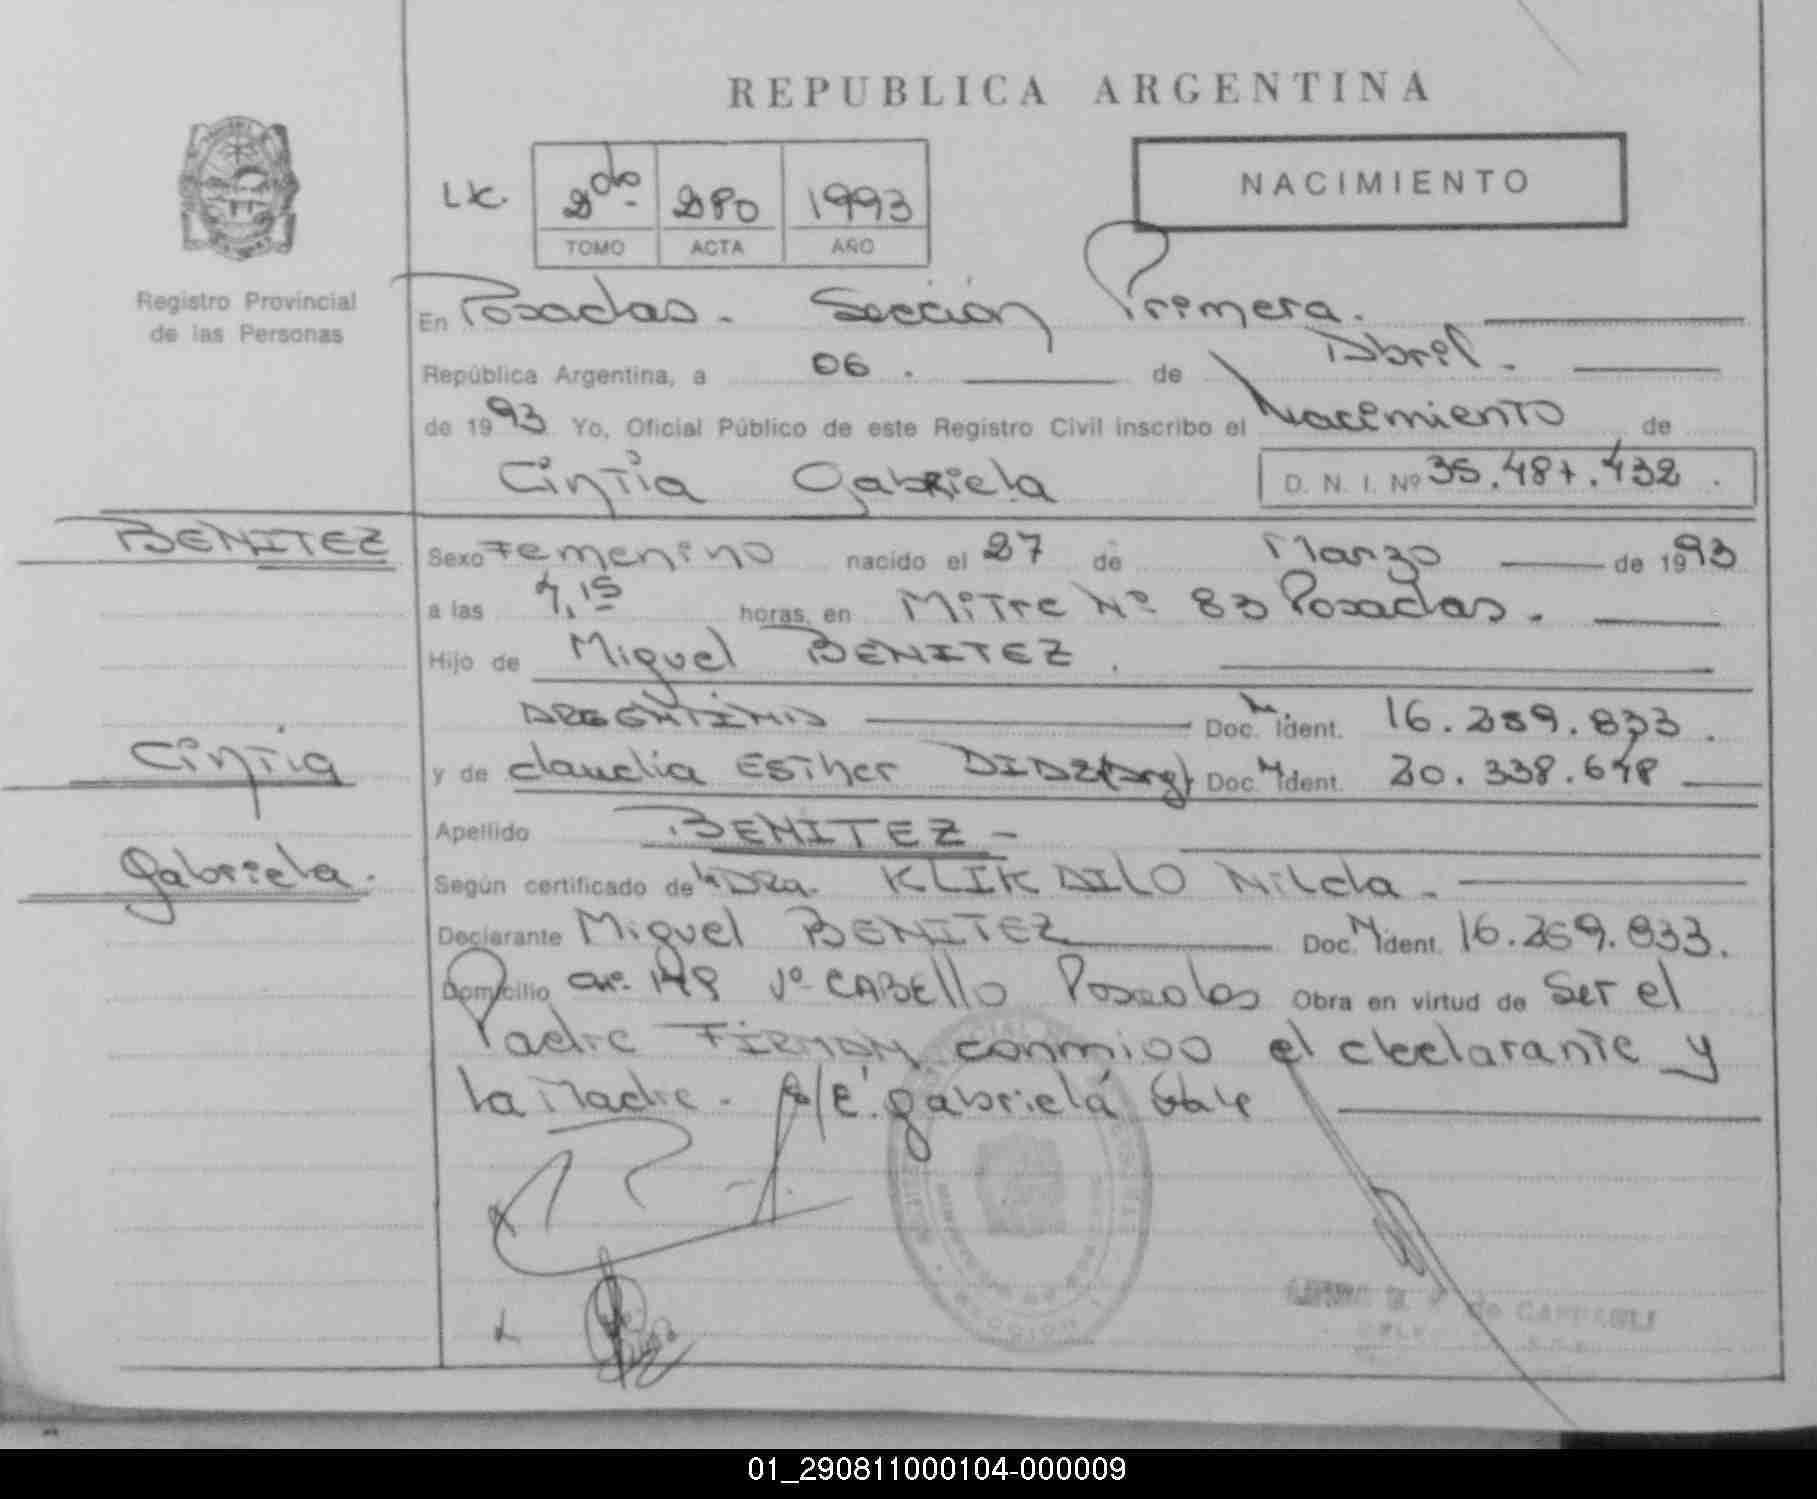 REPUBLICA ARGENTINA
NACIMIENTO
2do. 280 1993
TOMO ACTA AÑO
Registro Provincial
de las Personas
En Posadas. Sección Primera.
República Argentina, a 06. de Abril.
de 1993 Yo, Oficial Público de este Registro Civil inscribo el Nacimiento de
Cintia Gabriela D. N. I. Nº 35.487.432.
BENITEZ
Sexo Femenino nacido el 27 de Marzo de 1993
a las 7,15 horas, en Mitre Nº 83 Posadas.
Hijo de Miguel BENITEZ.
ARGENTINA Doc. Ident. 16.289.833.
Cintia
y de Claudia Esther DIAZ (Arg) Doc. Ident. 20.338.678
Apellido BENITEZ
Gabriela.
Según certificado de la DRa. Nilda.
Declarante Miguel BENITEZ Doc. Ident. 16.269.833.
Domicilio Vº CABELLO Posadas Obra en virtud de Ser el
Padre FIRMAN conmigo el declarante y
la Madre. gabriela Vale
de
01_290811000104-000009